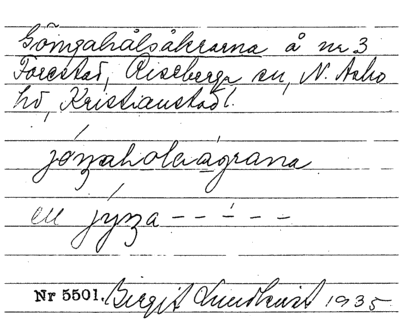 Göingahålsåkrarna å nr 3
Forestad, Riseberga sn, N. Åsbo
hd, Kristianstad l.
jönzaholaågrana
en jynza – – – – –
Nr 5501. Birgit Lundkvist 1935